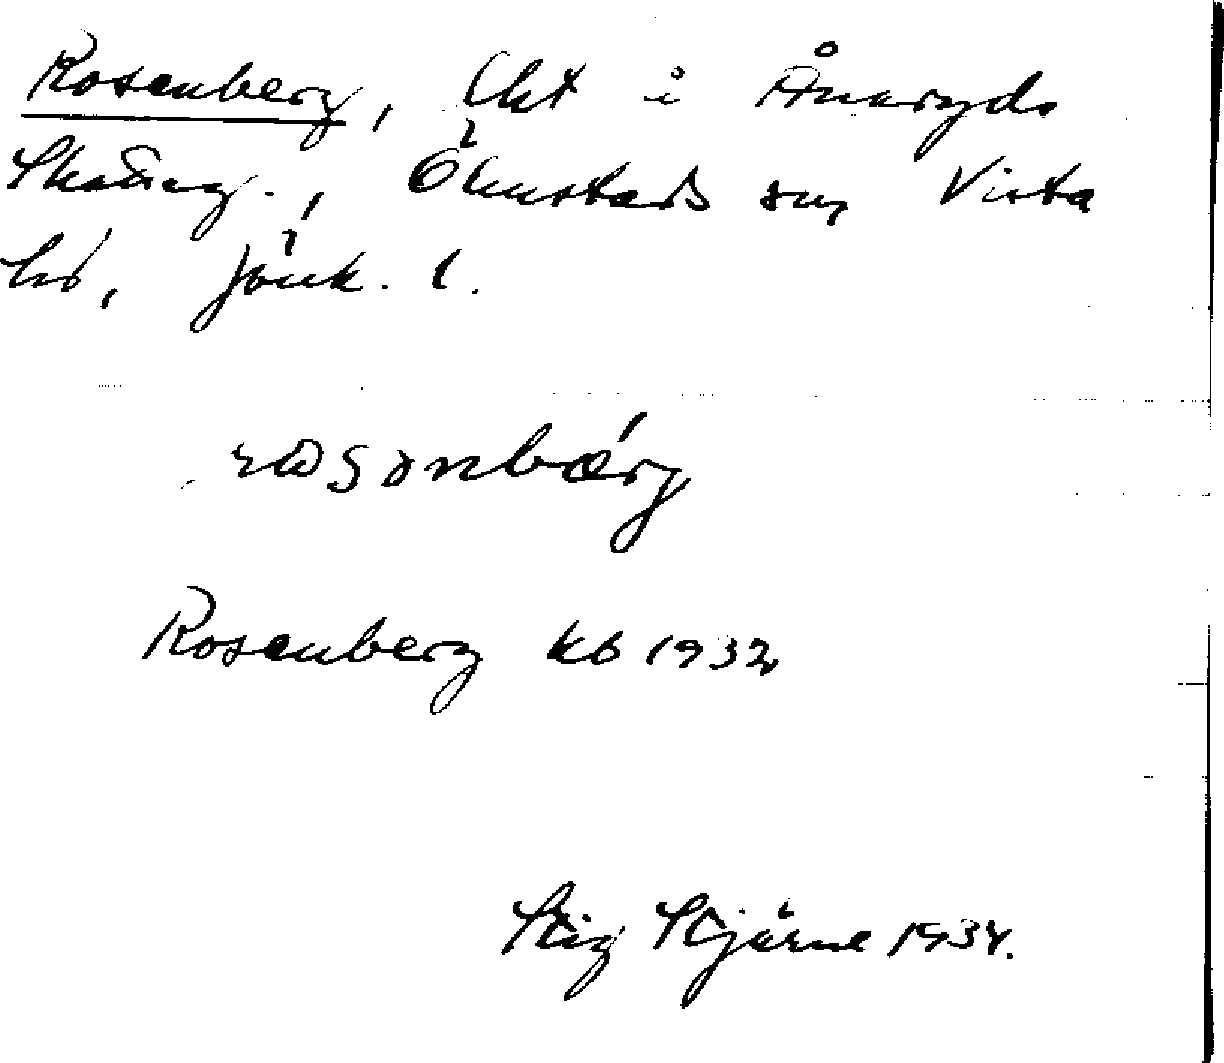 Rosenberg, lht i Ånaryds
Skatteg., Ölmstads sn, Vista
hd, Jönk. l.
rosənbærj
Rosenberg kb 1932
Stig Stjärne 1934.